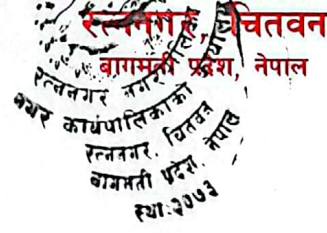 रत्ननगर, चितवन
बागमती प्रदेश, नेपाल
रत्ननगर नगरपालिका
नगर कार्यपालिकाको कार्यालय
रत्ननगर, चितवन
बागमती प्रदेश, नेपाल
स्था.२०७३